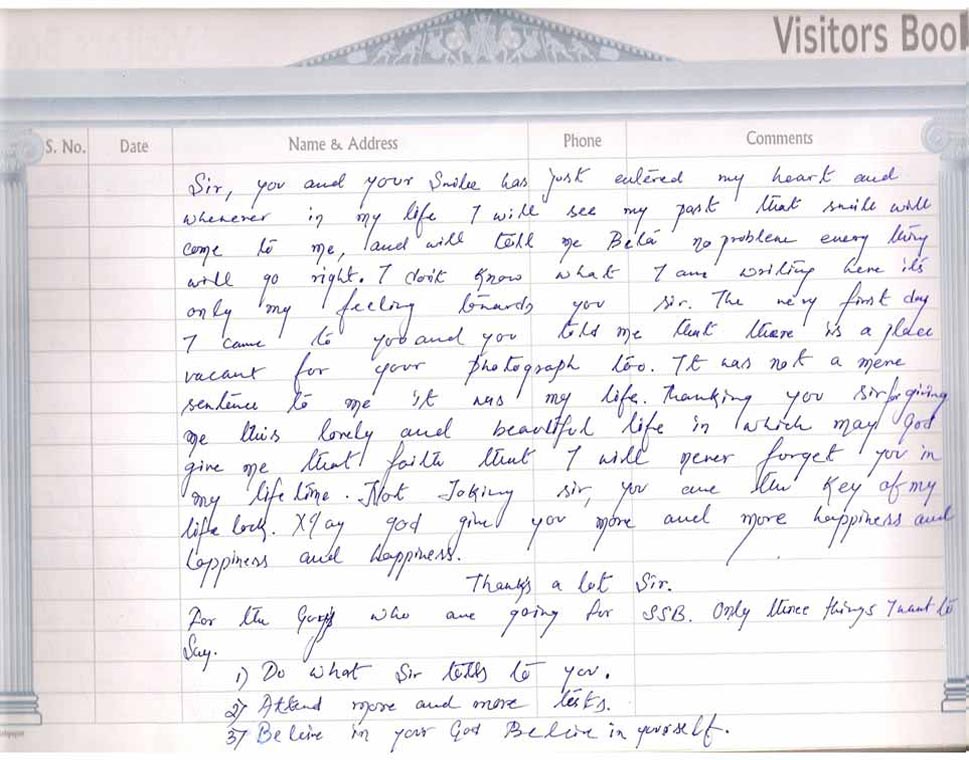 Visitors Boo
S. No. Date Name & Address Phone Comments
Sir, you and your Smile has just entered my heart and
whenever in my life I will see my past that smile will
come to me, and will tell me Beta no problem every thing
will go right. I don't know what I am writing here its
only my feeling towards you sir. The very first day
I came to you and you told me that there is a place
vacant for your photograph too. It was not a mere
sentence to me it was my life. Thanking you sir for giving
me this lovely and beautiful life in which may God
give me that faith that I will never forget you in
my life time. Not Joking sir, you are the key of my
life lock. May god give you more and more happiness and
happiness and happiness.
Thanks a lot Sir.
For the Guys who are going for SSB. Only three things I want to
Say.
1) Do what Sir tells to you.
2) Attend more and more tests.
3) Beleive in your God Beleive in yourself.